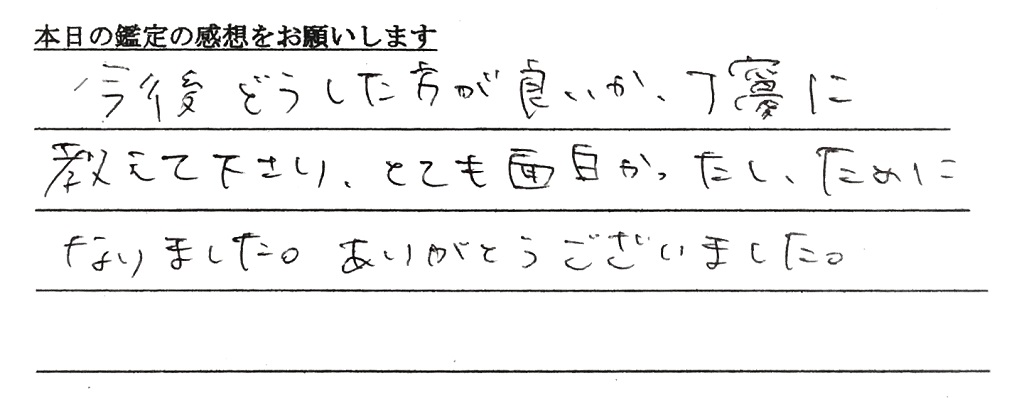 本日の鑑定の感想をお願いします
今後どうした方が良いか、丁寧に
教えて下さり、とても面白かったし、ために
なりました。ありがとうございました。